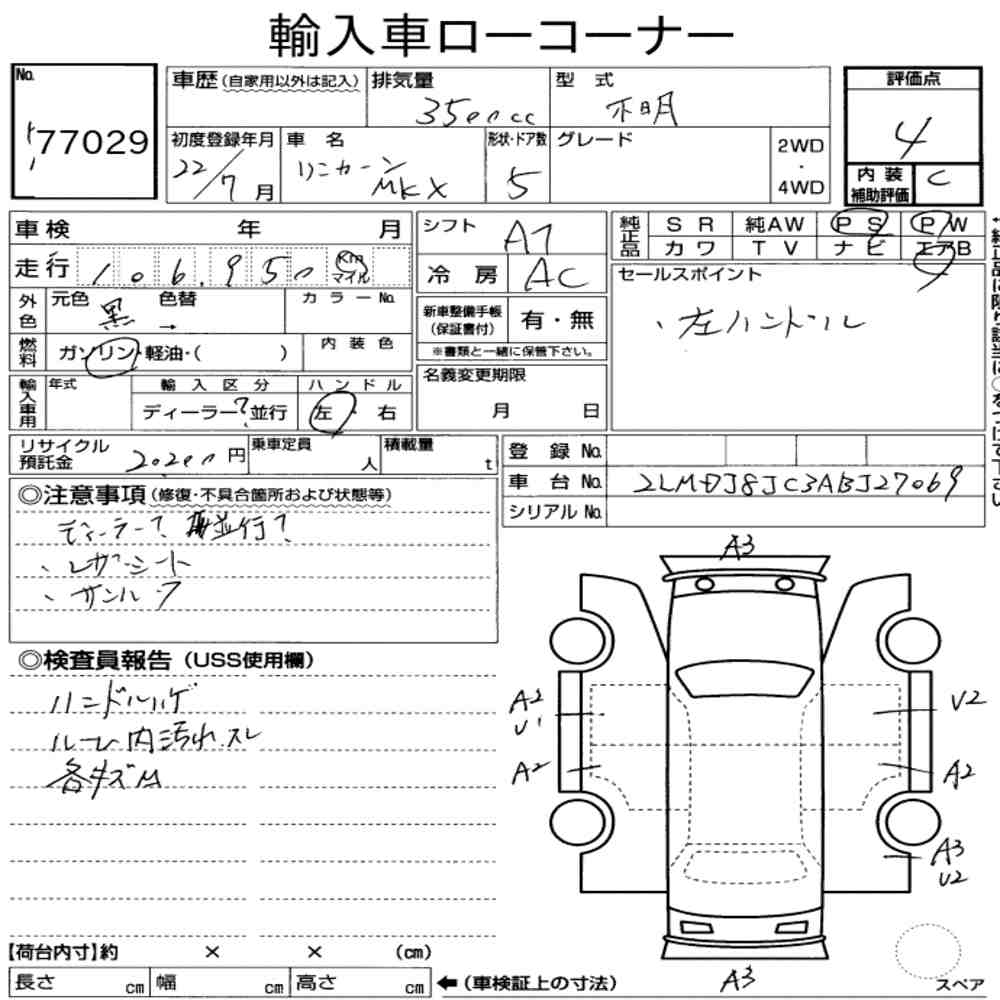 輸入車ローコーナー
No. 77029
車歴 (自家用以外は記入) 排気量 3500cc 型式 不明
評価点 4
内装補助評価 C
初度登録年月 22/7月 車名 リンカーン MKX 形状・ドア数 5 グレード 2WD・4WD
車検 年 月
走行 106,950 Km マイル
シフト AT
冷房 AC
純正品 SR 純AW PS PW
カワ TV ナビ エアB
セールスポイント
、左ハンドル
外色 元色 黒 色替 → カラーNo.
燃料 ガソリン・軽油・( ) 内装色
新車整備手帳(保証書付) 有・無
※書類と一緒に保管下さい。
名義変更期限 月 日
輸入車用 年式 輸入区分 ディーラー?並行 ハンドル 左・右
リサイクル預託金 円 乗車定員 人 積載量 t
登録No.
車台No. 2LMDJ8JC3ABJ27069
シリアルNo.
◎注意事項 (修復・不具合箇所および状態等)
ディーラー? 並行?
、レザーシート
、サンルーフ
◎検査員報告 (USS使用欄)
ハンドルハゲ
内汚れ スレ
各キズM
A3
A2 U1
A2
U2
A2
A3 U2
A3
スペア
【荷台内寸】約 × × (cm)
長さ cm 幅 cm 高さ cm ←(車検証上の寸法)